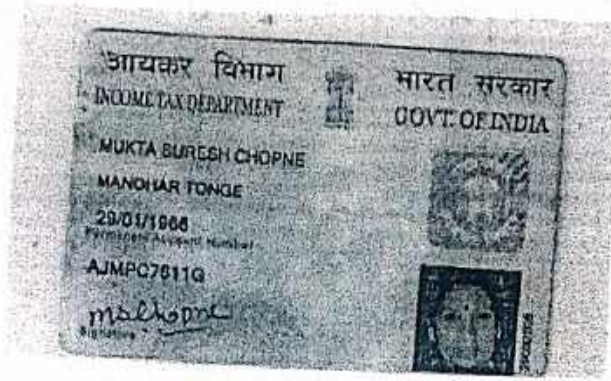 आयकर विभाग
INCOME TAX DEPARTMENT
भारत सरकार
GOVT. OF INDIA
MUKTA SURESH CHOPNE
MANOHAR TONGE
29/01/1966
Permanent Account Number
AJMPC7611G
mschopne
Signature